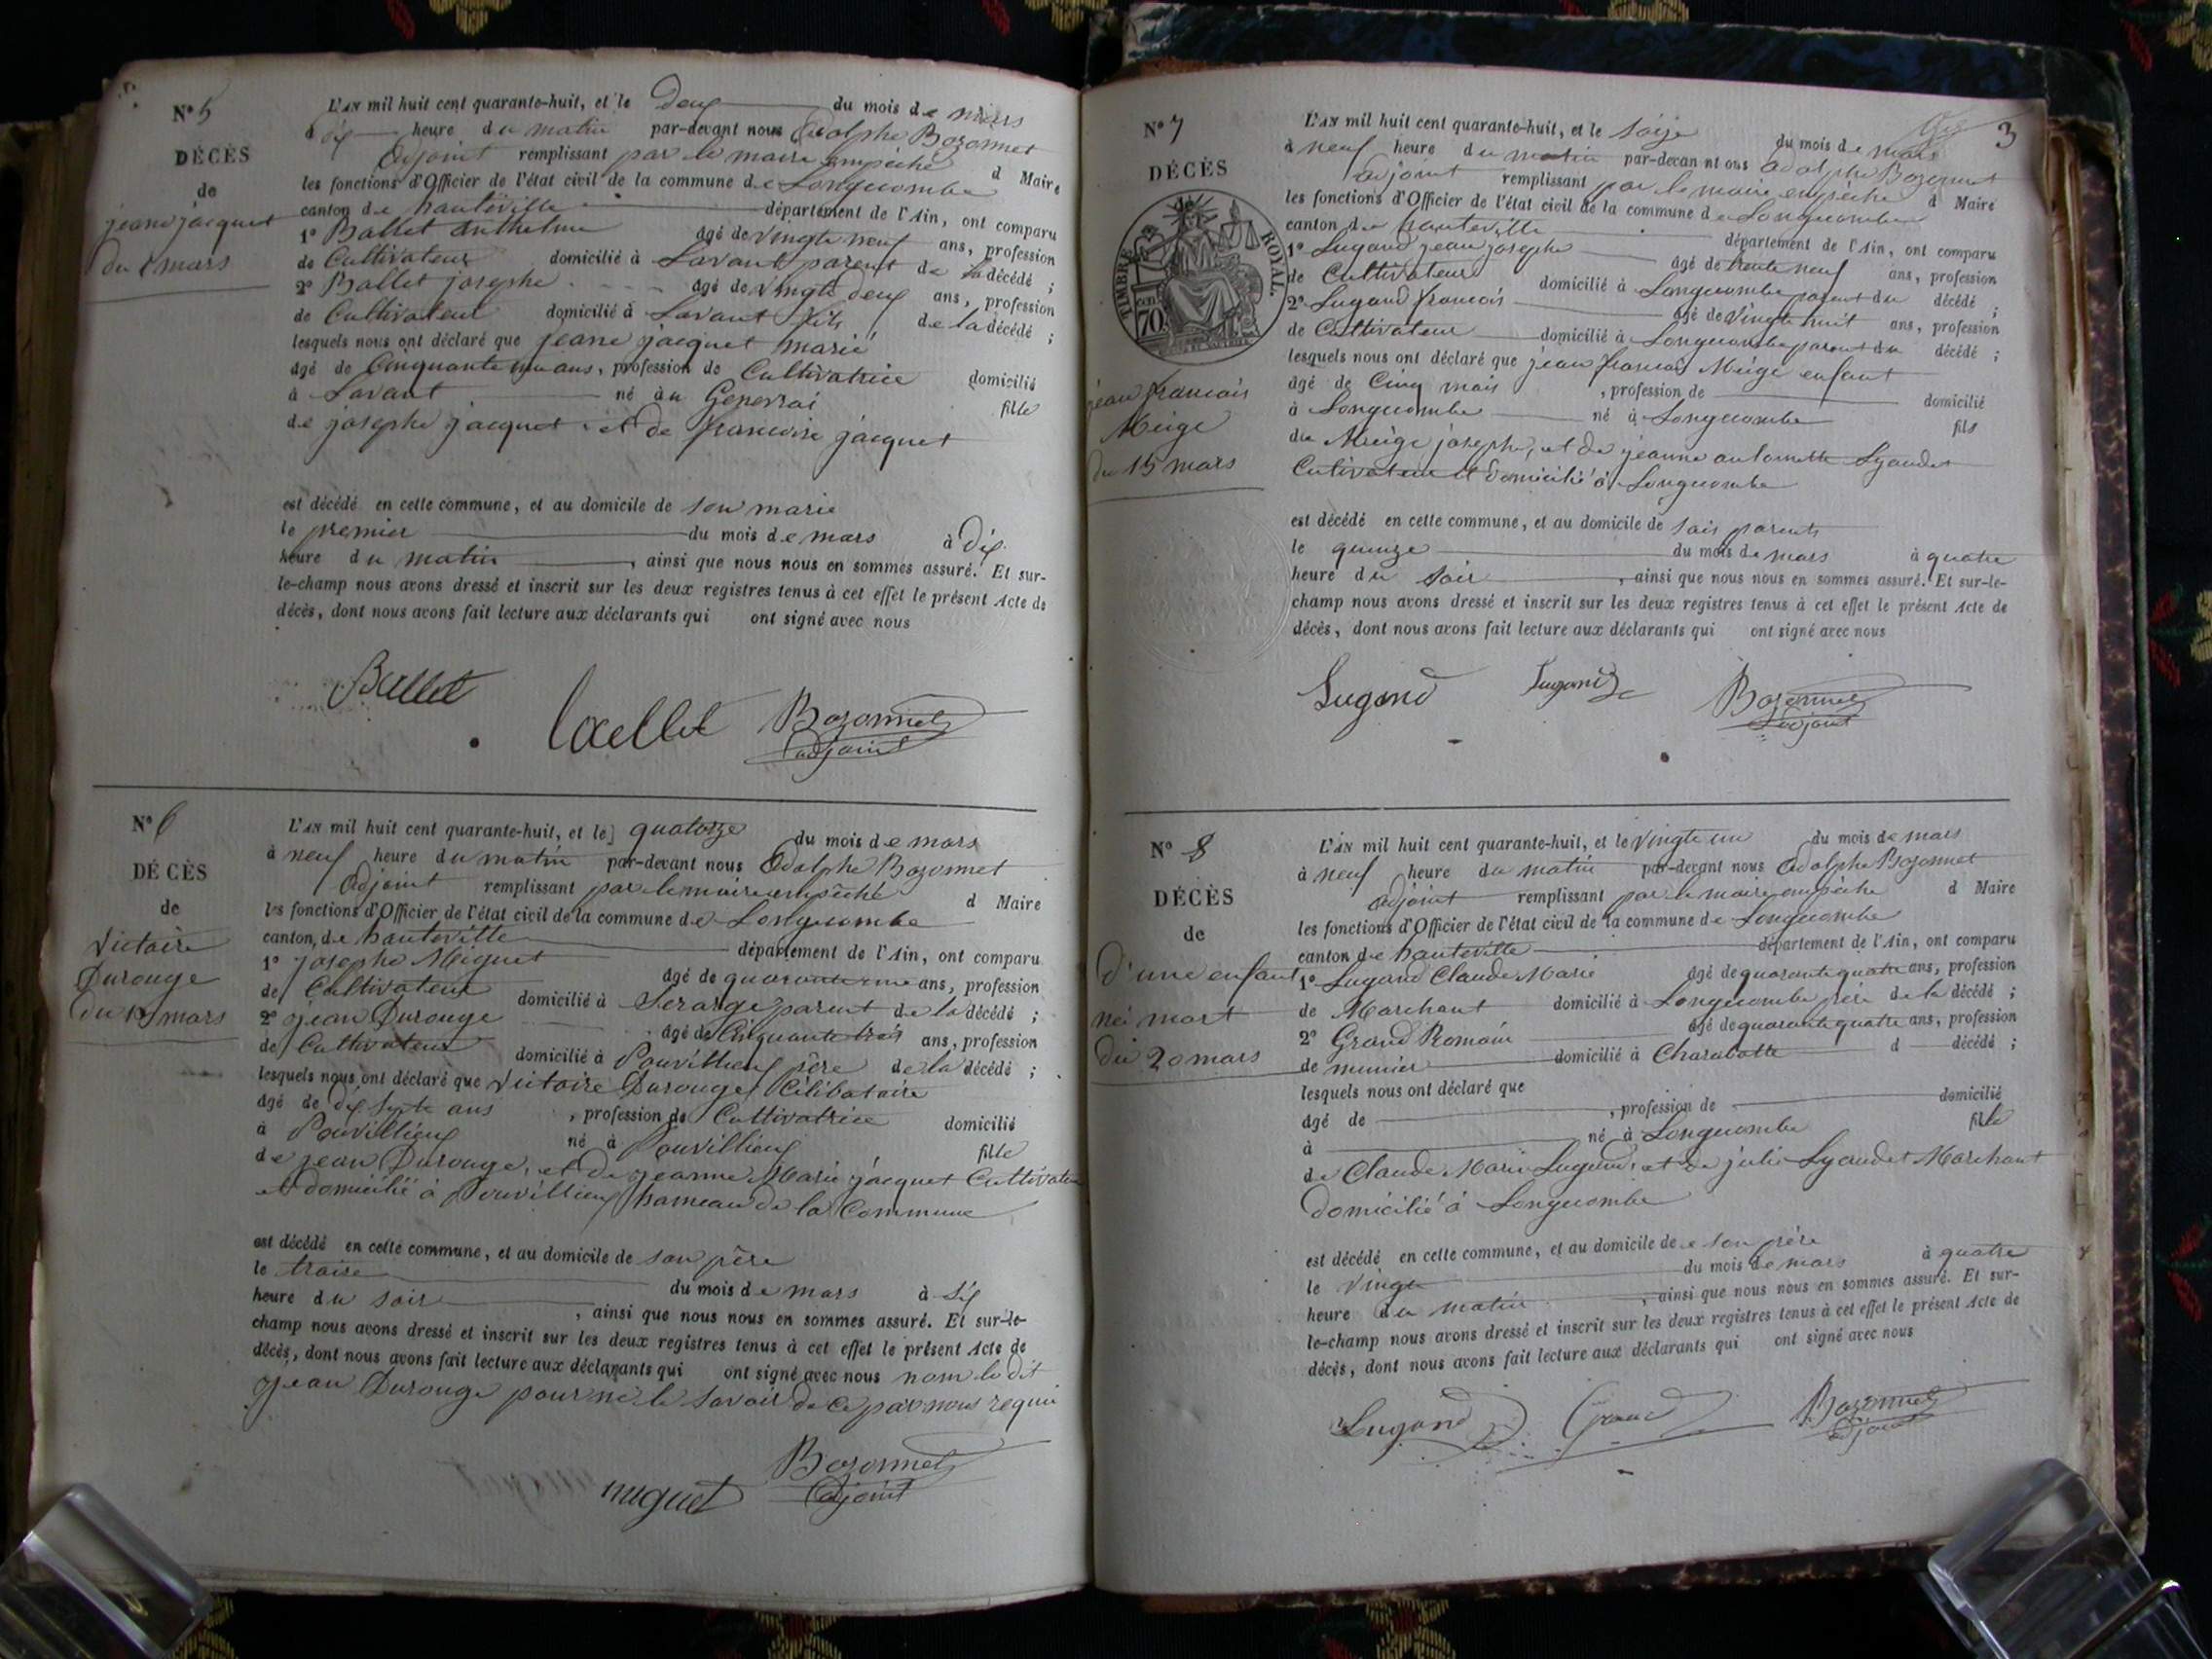 N° 5
DÉCÈS
de
jeane jacquet
du 1 mars
L'AN mil huit cent quarante-huit, et le deux du mois de mars
à dix heure du matin par-devant nous Adolphe Bozonnet
adjoint remplissant par le maire empêché d Maire
les fonctions d'Officier de l'état civil de la commune de Longecombe
canton de hauteville département de l'Ain, ont comparu
1° Ballet anthelme âgé de vingte neuf ans, profession
de Cultivateur domicilié à Lavant parent de la décédé ;
2° Ballet josephe âgé de vingte deux ans, profession
de Cultivateur domicilié à Lavant fils de la décédé ;
lesquels nous ont déclaré que jeane jacquet marié
âgé de Cinquante un ans, profession de Cultivatrice domicilié
à Lavant né au Genevrai fille
de josephe jacquet et de francoise jacquet
est décédé en cette commune, et au domicile de son marie
le premier du mois de mars à dix
heure du matin , ainsi que nous nous en sommes assuré. Et sur-
le-champ nous avons dressé et inscrit sur les deux registres tenus à cet effet le présent Acte de
décès, dont nous avons fait lecture aux déclarants qui ont signé avec nous
Ballet
Bozonnet
adjoint
N° 6
DÉCÈS
de
Victoire
Durouge
du mars
L'AN mil huit cent quarante-huit, et le quatorze du mois de mars
à neuf heure du matin par-devant nous Adolphe Bozonnet
Adjoint remplissant par le maire empêché d Maire
les fonctions d'Officier de l'état civil de la commune de Longecombe
canton de hauteville département de l'Ain, ont comparu
1° josephe Miguet âgé de quarante une ans, profession
de Cultivateur domicilié à parent de la décédé ;
2° jean Durouge âgé de Cinquante trois ans, profession
de Cultivateur domicilié à Pouvillieux père de la décédé ;
lesquels nous ont déclaré que Victoire Durouge Célibataire
âgé de dix septe ans , profession de Cultivatrice domicilié
à Pouvillieux né à Pouvillieux fille
de jean Durouge, et de jeanne Marie jacquet Cultivateur
et domicilié à Pouvillieux hameau de la Commune
est décédé en cette commune, et au domicile de son père
le traize du mois de mars à six
heure du soir , ainsi que nous nous en sommes assuré. Et sur-le-
champ nous avons dressé et inscrit sur les deux registres tenus à cet effet le présent Acte de
décès, dont nous avons fait lecture aux déclarants qui ont signé avec nous nom le dit
jean Durouge pour ne le savoir de ce par nous requi
miguet
Bozonnet
adjoint
3
N° 7
DÉCÈS
de
TIMBRE ROYAL.
70
jean francois
Meige
du 15 mars
L'AN mil huit cent quarante-huit, et le saize du mois de mars
à neuf heure du matin par-devan nt ous Adolphe Bozonnet
adjoint remplissant par le maire empêché d Maire
les fonctions d'Officier de l'état civil de la commune de Longecombe
canton de hauteville département de l'Ain, ont comparu
1° Lugand jean josephe âgé de trente neuf ans, profession
de Cultivateur domicilié à Longecombe parent du décédé ;
2° Lugand francois âgé de vingte huit ans, profession
de Cultivateur domicilié à Longecombe parent du décédé ;
lesquels nous ont déclaré que jean francois Meige enfant
âgé de Cinq mois , profession de domicilié
à Longecombe né à Longecombe fils
de Meige josephe, et de jeanne antoinette Lyaudet
Cultivateur et domicilié à Longecombe
est décédé en cette commune, et au domicile de sais parents
le quinze du mois de mars à quatre
heure du soir , ainsi que nous nous en sommes assuré. Et sur-le-
champ nous avons dressé et inscrit sur les deux registres tenus à cet effet le présent Acte de
décès, dont nous avons fait lecture aux déclarants qui ont signé avec nous
Lugand Lugand Bozonnet
adjoint
N° 8
DÉCÈS
de
d'une enfant
né mort
du 20 mars
L'AN mil huit cent quarante-huit, et le vingte un du mois de mars
à neuf heure du matin par-devant nous Adolphe Bozonnet
adjoint remplissant par le maire empêché d Maire
les fonctions d'Officier de l'état civil de la commune de Longecombe
canton de hauteville département de l'Ain, ont comparu
1° Lugand Claude Marie âgé de quarante quatre ans, profession
de Marchant domicilié à Longecombe père de la décédé ;
2° Grand Romain âgé de quarante quatre ans, profession
de munier domicilié à Charabotte d décédé ;
lesquels nous ont déclaré que
âgé de , profession de domicilié
à né à Longecombe fille
de Claude Marie Lugand, et de julie Lyaudet Marchant
domicilié à Longecombe
est décédé en cette commune, et au domicile de son père
le vingte du mois de mars à quatre
heure du matin , ainsi que nous nous en sommes assuré. Et sur-
le-champ nous avons dressé et inscrit sur les deux registres tenus à cet effet le présent Acte de
décès, dont nous avons fait lecture aux déclarants qui ont signé avec nous
Lugand Grand Bozonnet
adjoint